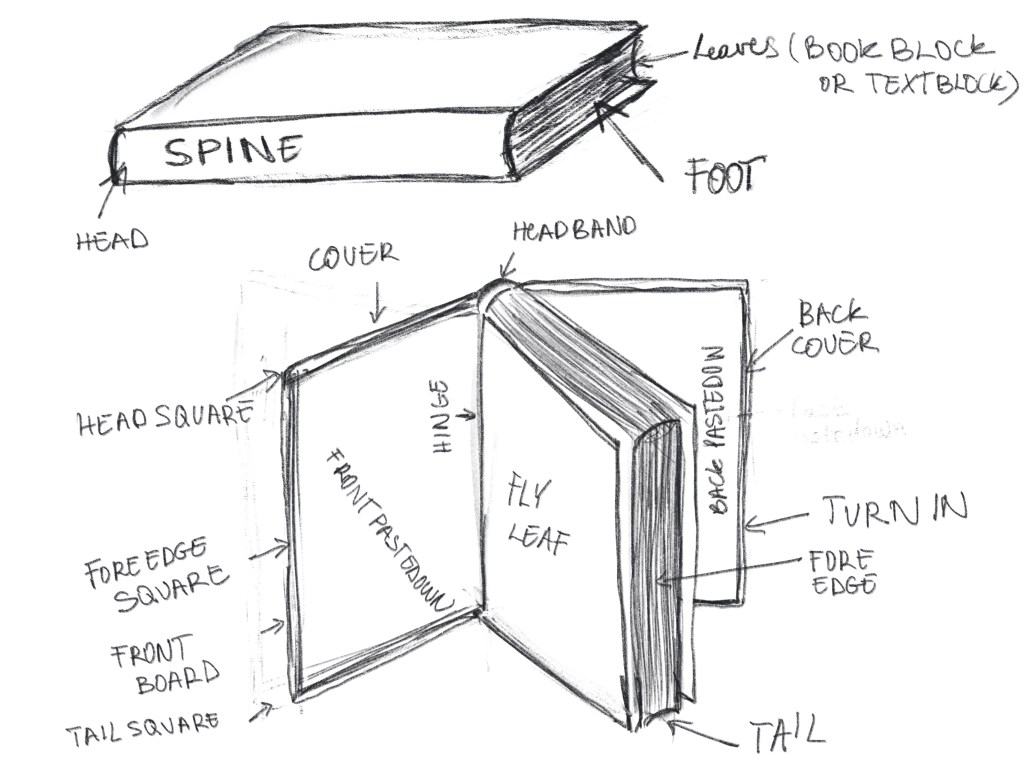 Leaves (BOOK BLOCK
OR TEXTBLOCK)
SPINE
FOOT
HEAD
HEADBAND
COVER
BACK
COVER
HEAD SQUARE
HINGE
BACK PASTEDOW
FRONT PASTEDOWN
FLY
LEAF
TURN IN
FORE EDGE
SQUARE
FORE
EDGE
FRONT
BOARD
TAIL SQUARE
TAIL